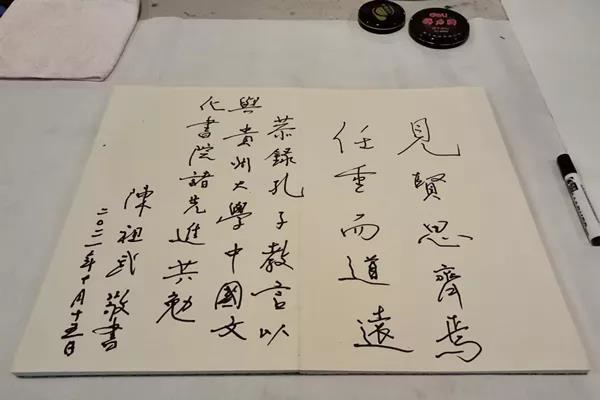 見賢思齊焉
任重而道遠
恭録孔子教言以
與貴州大學中國文
化書院諸先進共勉
陳祖武敬書
二〇二一年十月十五日